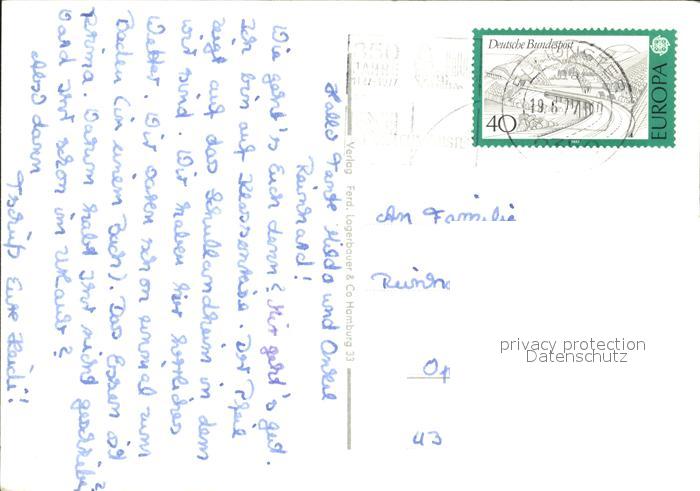 Hallo Tante Hilda und Onkel
Reinhard!
Wie geht's Euch denn? Mir geht's gut.
Ich bin auf Klassenreise. Der Pfeil
zeigt auf das Schullandheim in dem
wir sind. Wir haben hier herrliches
Wetter. Wir waren schon einmal zum
Baden (in einem Bach). Das Essen ist
prima. Warum habt Ihr nicht geschrieben?
Ward Ihr schon im Urlaub?
Also dann
Tschüß Eure Heidi!
Verlag Ferd. Lagerbauer & Co Hamburg 33
Deutsche Bundespost
40
EUROPA
19.6.77
An Familie
Reinh
privacy protection
Datenschutz
43